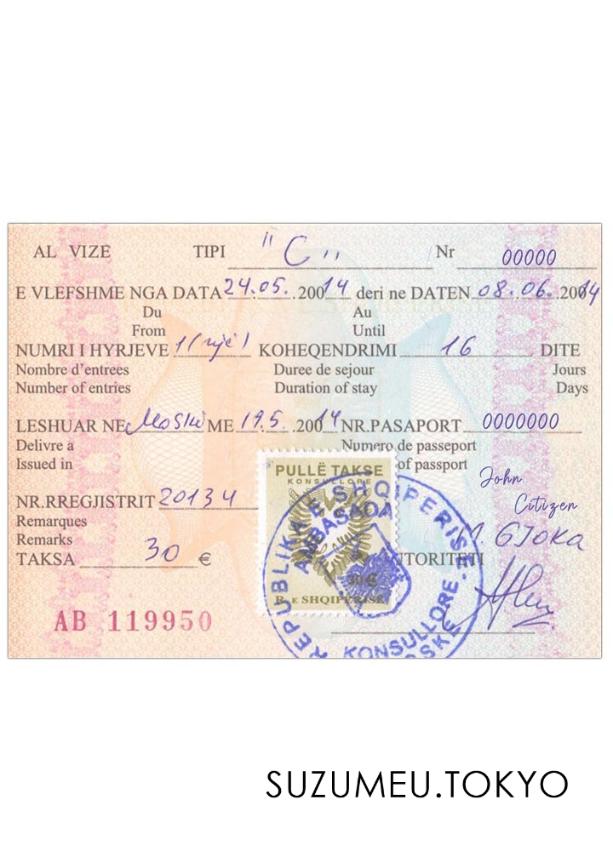 AL VIZE TIPI "C" Nr 00000
E VLEFSHME NGA DATA 24.05.2014 deri ne DATEN 08.06.2014
Du Au
From Until
NUMRI I HYRJEVE 1 (një) KOHEQENDRIMI 16 DITE
Nombre d'entrees Duree de sejour Jours
Number of entries Duration of stay Days
LESHUAR NE ME 19.5.2014 NR.PASAPORT 0000000
Delivre a Numero de passeport
Issued in of passport
John
Citizen
NR.RREGJISTRIT 20134
Remarques
Remarks
M. GJOKA
TAKSA 30 €
AUTORITETI
PULLË TAKSE
KONSULLORE
30 €
R. E SHQIPERISË
REPUBLIKA E SHQIPERISE
AMBASADA
KONSULLORE
AB 119950
SUZUMEU.TOKYO